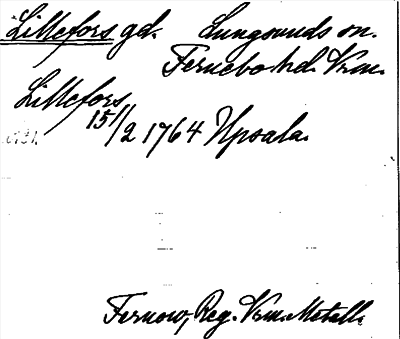 Lillefors gd. Lungsunds sn.
Fernebo hd. Vrm.
Lillefors
15/2 1764 Upsala.
Fernow, Reg. Vrm. Metall.